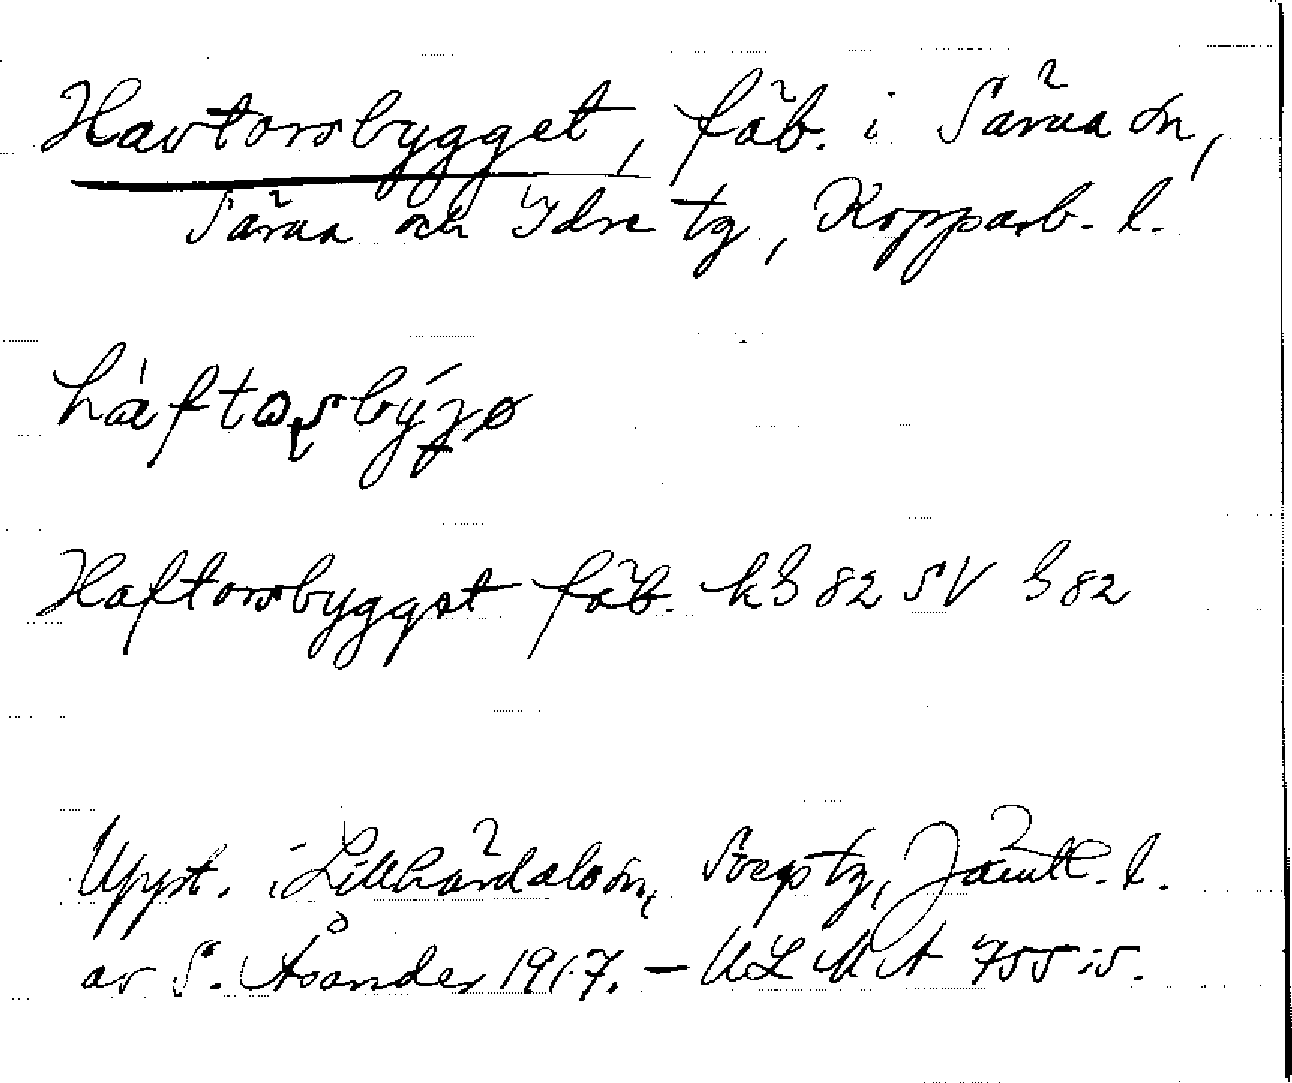 Havtorsbygget, fäb. i Särna sn,
Särna och Idre tg, Kopparb. l.
Haftorsbygget fäb. k G 82 SV G 82
Uppt. i Lillhärdals sn, Svegs tg, Jämtl. l.
av S. Åsander 1917. – ULMA 755:5.